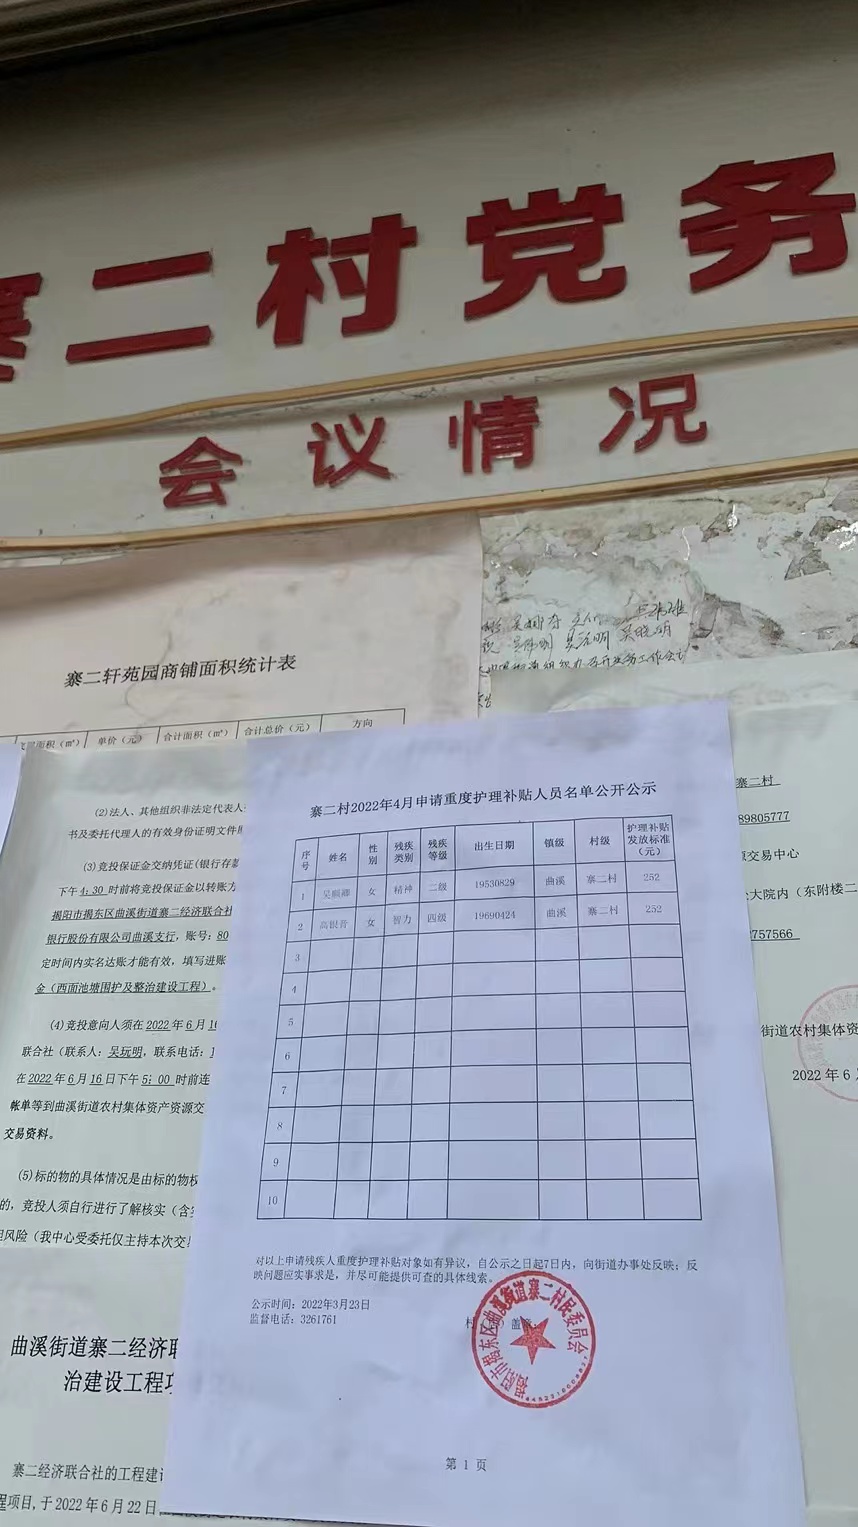 寨二村党务
会议情况
寨二轩苑园商铺面积统计表
面积（㎡） 单价（元） 合计面积（㎡） 合计总价（元） 方向
(2)法人、其他组织非法定代表人
书及委托代理人的有效身份证明文件
(3)竞投保证金交纳凭证(银行存款
下午4:30时前将竞投保证金以转账方
揭阳市揭东区曲溪街道寨二经济联合社
银行股份有限公司曲溪支行，账号：80
定时间内实名达账才能有效，填写进账
金（西面池塘围护及整治建设工程）。
(4)竞投意向人须在2022年6月16
联合社（联系人：吴玩明，联系电话：1
在2022年6月16日下午5：00时前连
帐单等到曲溪街道农村集体资产资源交
交易资料。
(5)标的物的具体情况是由标的物权
的，竞投人须自行进行了解核实（含
风险（我中心受委托仅主持本次交
曲溪街道寨二经济联
治建设工程项
寨二经济联合社的工程建设
程项目,于2022年6月22日
寨二村2022年4月申请重度护理补贴人员名单公开公示
序号 姓名 性别 残疾类别 残疾等级 出生日期 镇级 村级 护理补贴发放标准（元）
1 吴顺卿 女 精神 二级 19530829 曲溪 寨二村 252
2 高银音 女 智力 四级 19690424 曲溪 寨二村 252
3
4
5
6
7
8
9
10
对以上申请残疾人重度护理补贴对象如有异议，自公示之日起7日内，向街道办事处反映；反
映问题应实事求是，并尽可能提供可查的具体线索。
公示时间：2022年3月23日
监督电话：3261761
村 盖章
揭阳市揭东区曲溪街道寨二村民委员会
第 1 页
寨二村
89805777
源交易中心
大院内（东附楼二
2757566
街道农村集体资
2022年6